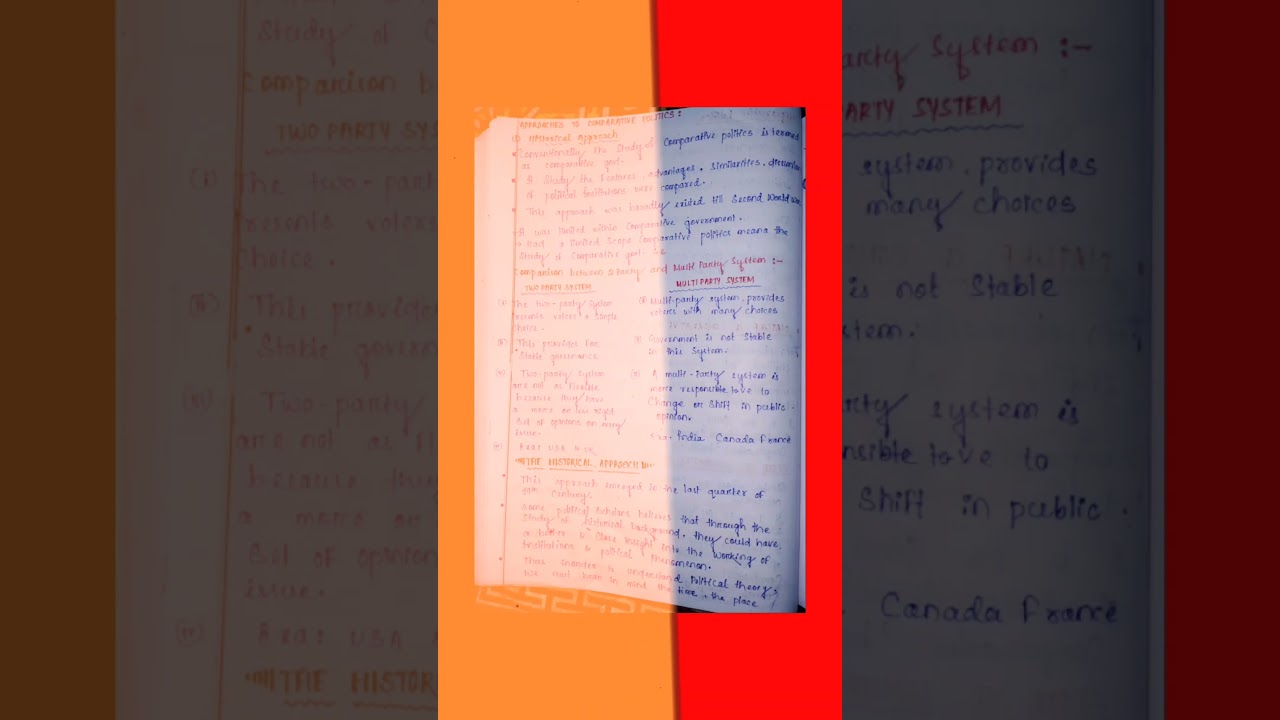 APPROACHES TO COMPARATIVE POLITICS :
(1) Historical Approach
Conventionally the study of Comparative politics is termed
as comparative govt.
It study the features, advantages, similarities,
of political institutions were compared.
This approach was broadly exited till Second World War
It was limited within Comparative government.
Had a limited scope Comparative politics means the
study of Comparative govt.
Comparison between 2 Party and Multi Party System :-
TWO PARTY SYSTEM
MULTI PARTY SYSTEM
(i) The two-party system
presents voters a simple
choice.
(i) Multi-party system, provides
voters with many choices
(ii) This provides for
Stable governance
(ii) Government is not Stable
in this System.
(iii) Two-party system
are not as flexible
because they have
a more or less
of opinions on many
issue.
(iii) A multi-Party system is
more responsible to
Change or Shift in public
opinion.
(iv) USA
India Canada France
THE HISTORICAL APPROACH
This approach emerged in the last quarter of
Century.
Some political Scholars believes that through the
Study of historical background, they could have
a better & Close insight into the working of
Institutions & political Phenomenon.
Thus inorder to understand Political theory,
We must bear in mind the time, the place